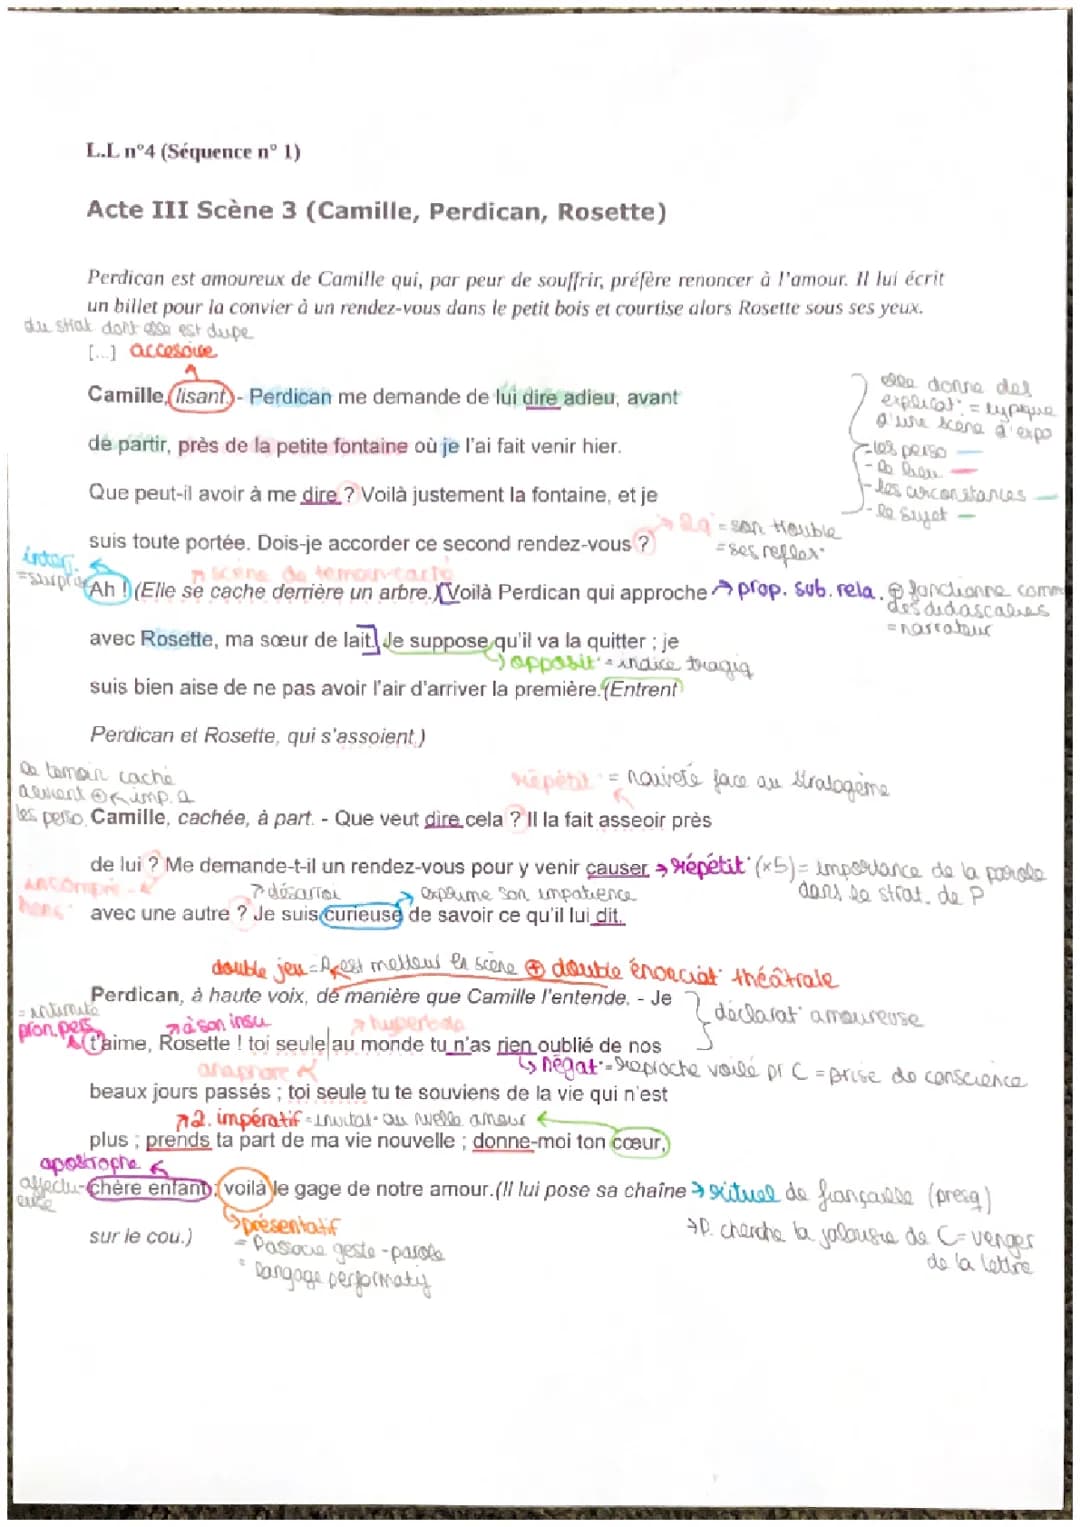 L.L n°4 (Séquence n° 1)
Acte III Scène 3 (Camille, Perdican, Rosette)
Perdican est amoureux de Camille qui, par peur de souffrir, préfère renoncer à l'amour. Il lui écrit
un billet pour la convier à un rendez-vous dans le petit bois et courtise alors Rosette sous ses yeux.
du strat dont elle est dupe
[...] accesoire
Camille, (lisant.) - Perdican me demande de lui dire adieu, avant
elle donne des
explicat° = typique
d'une scène d'expo
de partir, près de la petite fontaine où je l'ai fait venir hier.
- les perso
- le lieu
- les circonstances
- le sujet
Que peut-il avoir à me dire ? Voilà justement la fontaine, et je
→ 2q° = son trouble
= ses reflex°
suis toute portée. Dois-je accorder ce second rendez-vous ?
interj.
= surpri
scène de temoin caché
Ah ! (Elle se cache derrière un arbre.) [Voilà Perdican qui approche → prop. sub. rela. ⊕ fonctionne comm
des didascalies
= narrateur
avec Rosette, ma sœur de lait.] Je suppose qu'il va la quitter ; je
opposit° = indice tragiq
suis bien aise de ne pas avoir l'air d'arriver la première. (Entrent
Perdican et Rosette, qui s'assoient.)
le temoin caché
devient ⊕ imp. q
les perso.
répétit° = naiveté face au stratagème
Camille, cachée, à part. - Que veut dire cela ? Il la fait asseoir près
de lui ? Me demande-t-il un rendez-vous pour y venir causer → répétit° (x5) = importance de la parole
dans le strat. de P
incompré-
hens°
désarroi
exprime son impatience
avec une autre ? Je suis curieuse de savoir ce qu'il lui dit.
double jeu = P est metteur en scène ⊕ double énonciat° théâtrale
Perdican, à haute voix, de manière que Camille l'entende. - Je
déclarat° amoureuse
= intimité
pron. pers
à son insu
hyperbole
t'aime, Rosette ! toi seule au monde tu n'as rien oublié de nos
anaphore
négat° = reproche voilé pr C = prise de conscience
beaux jours passés ; toi seule tu te souviens de la vie qui n'est
2. impératif = invitat° au nvelle amour
plus ; prends ta part de ma vie nouvelle ; donne-moi ton cœur,
apostrophe
affectu-
euse
chère enfant ; voilà le gage de notre amour. (Il lui pose sa chaîne → rituel de fiançaille (presq)
sur le cou.)
présentatif
= l'associe geste - parole
= langage performatif
→ P. cherche la jalousie de C = venger
de la lettre